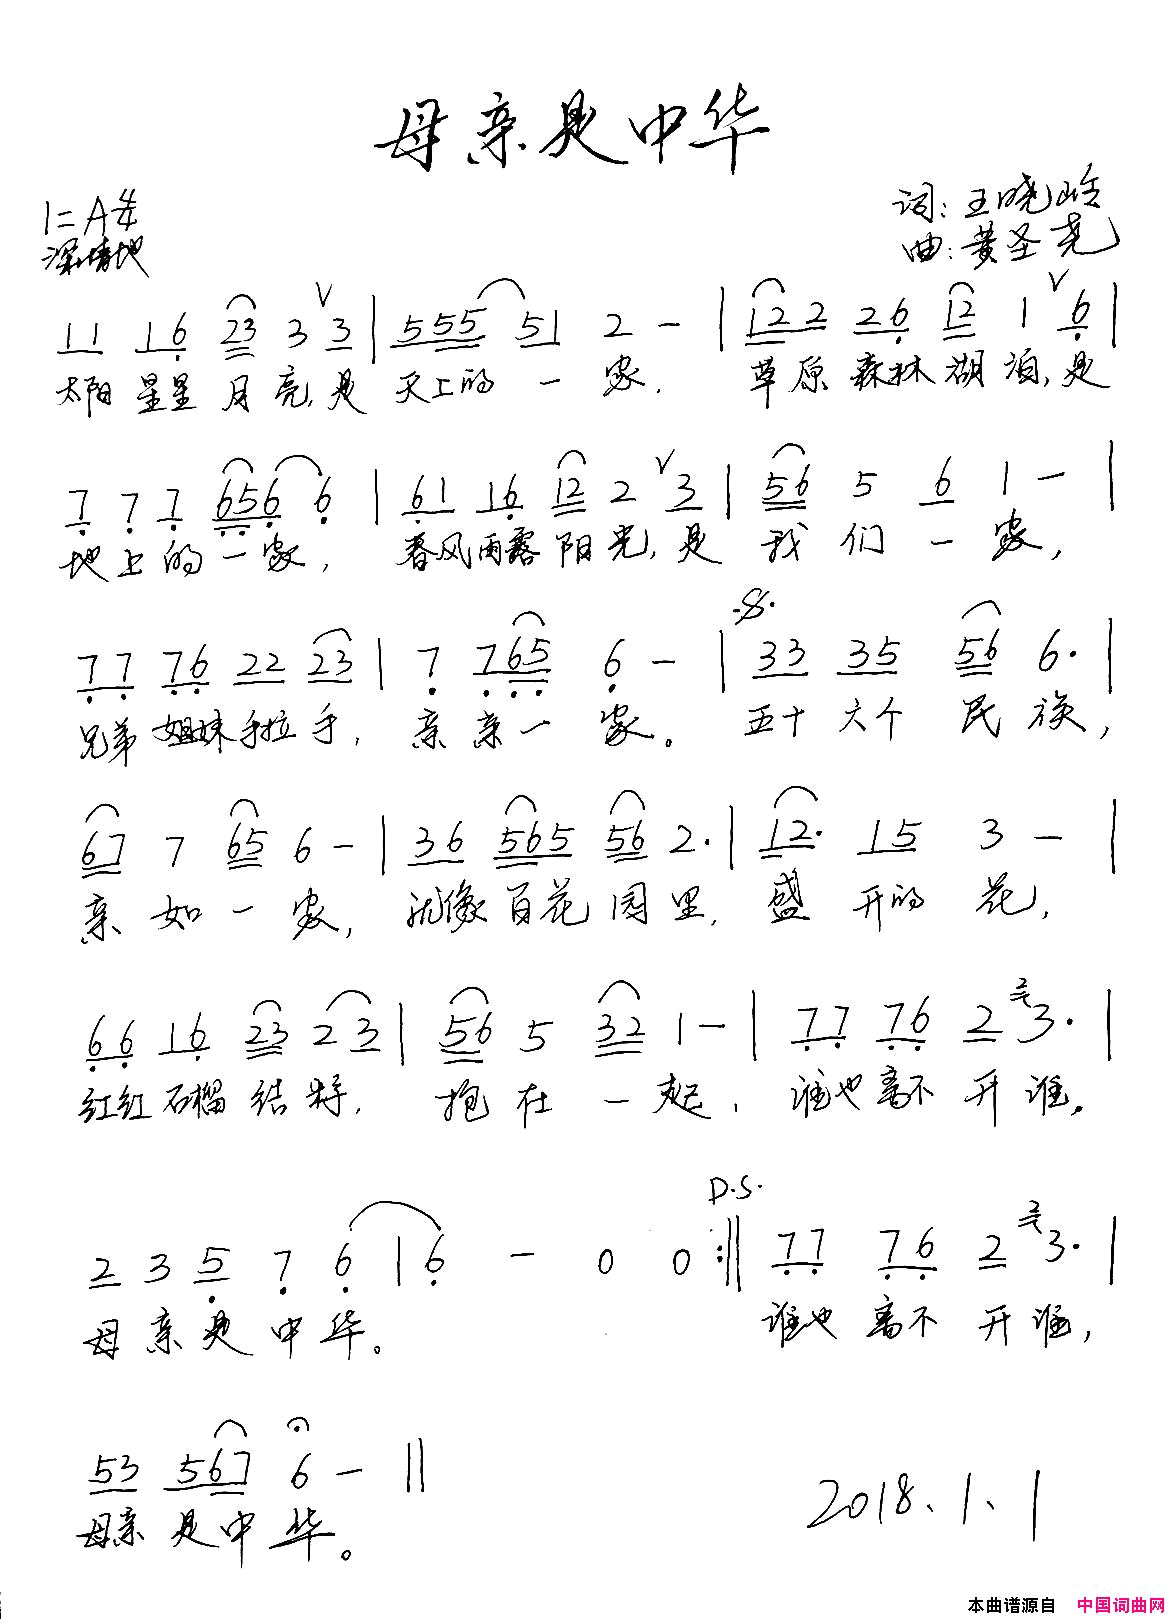 母亲是中华
1=A 4/4
词:王晓岭
深情地
曲:黄圣尧
11 16 23 3 3 | 555 51 2 - | 122 26 12 1 6 |
太阳 星星 月亮,是 天上的一家, 草原森林湖泊,是
7 7 7 656 6 | 61 16 12 2 3 | 56 5 6 1 - |
地上的一家, 春风雨露阳光,是 我们一家,
77 76 22 23 | 7 765 6 - | 33 35 56 6· |
兄弟姐妹手拉手, 亲亲一家。 五十六个民族,
67 7 65 6 - | 36 565 56 2· | 12· 15 3 - |
亲如一家, 就像百花园里, 盛开的花,
66 16 23 2 3 | 56 5 32 1 - | 77 76 2 3· |
红红石榴结籽, 抱在一起, 谁也离不开谁。
D.S.
2 3 5 7 6 | 6 - 0 0 :|| 77 76 2 3· |
母亲是中华。 谁也离不开谁,
53 567 6 - ||
母亲是中华。
2018、1、1
本曲谱源自 中国词曲网